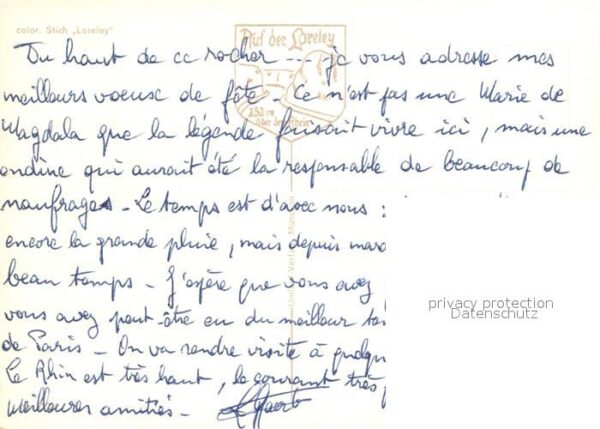 color. Stich „Loreley"
Auf der Loreley
Du haut de ce rocher --- je vous adresse mes
meilleurs voeux de fête - Ce n'est pas une Marie de
Magdala que la légende faisait vivre ici, mais une
ondine qui aurait été la responsable de beaucoup de
naufrages - Le temps est d'avec nous :
encore la grande pluie, mais depuis
beau temps - J'espère que vous avez
vous avez peut-être eu du meilleur
de Paris - On va rendre visite à
Le Rhin est très haut, le courant très
Meilleures amitiés -
privacy protection
Datenschutz